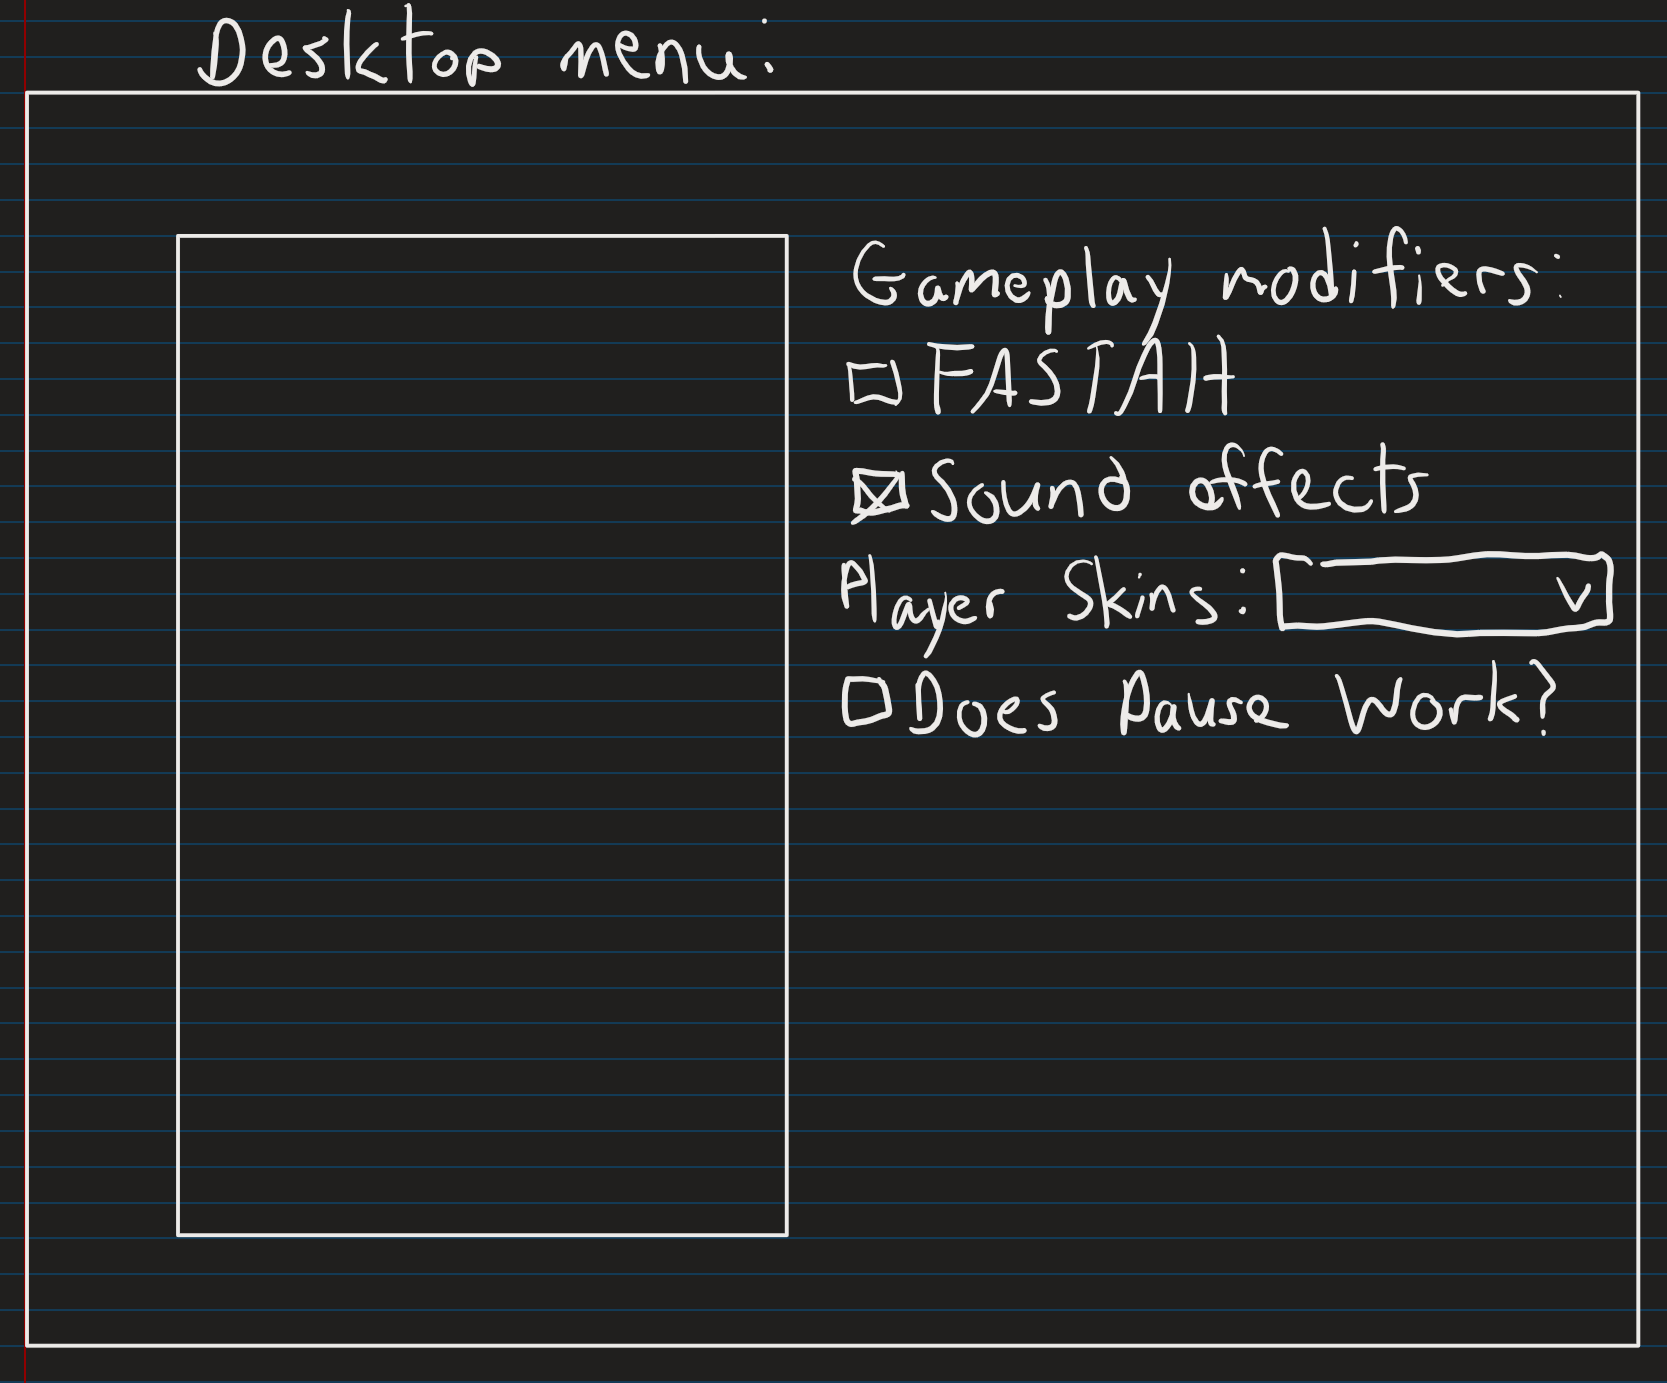 Desktop menu:
Gameplay modifiers:
FASTAH
Sound effects
Player Skins:
Does Pause Work?